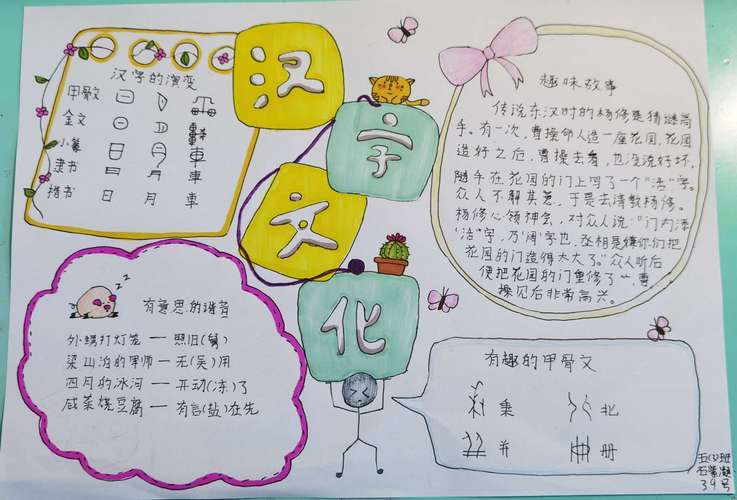 汉字文化
汉字的演变
甲骨文
金文
小篆
隶书 日 月 車
楷书 日 月 車
趣味故事
传说东汉时的杨修是猜谜高
手。有一次，曹操命人造一座花园，花园
造好之后，曹操去看，也没说好坏，
随手在花园的门上写了一个“活”字。
众人不解其意，于是去请教杨修。
杨修心领神会，对众人说：“门内添
‘活’字，乃‘阔’字也，丞相是嫌你们把
花园的门造得太大了。”众人听后
便把花园的门重修了一下，曹
操见后非常高兴。
有意思的谐音
外甥打灯笼 — 照旧(舅)
梁山泊的军师 — 无(吴)用
四月的冰河 — 开动(冻)了
咸菜烧豆腐 — 有言(盐)在先
有趣的甲骨文
乘 北
并 册
班
39号